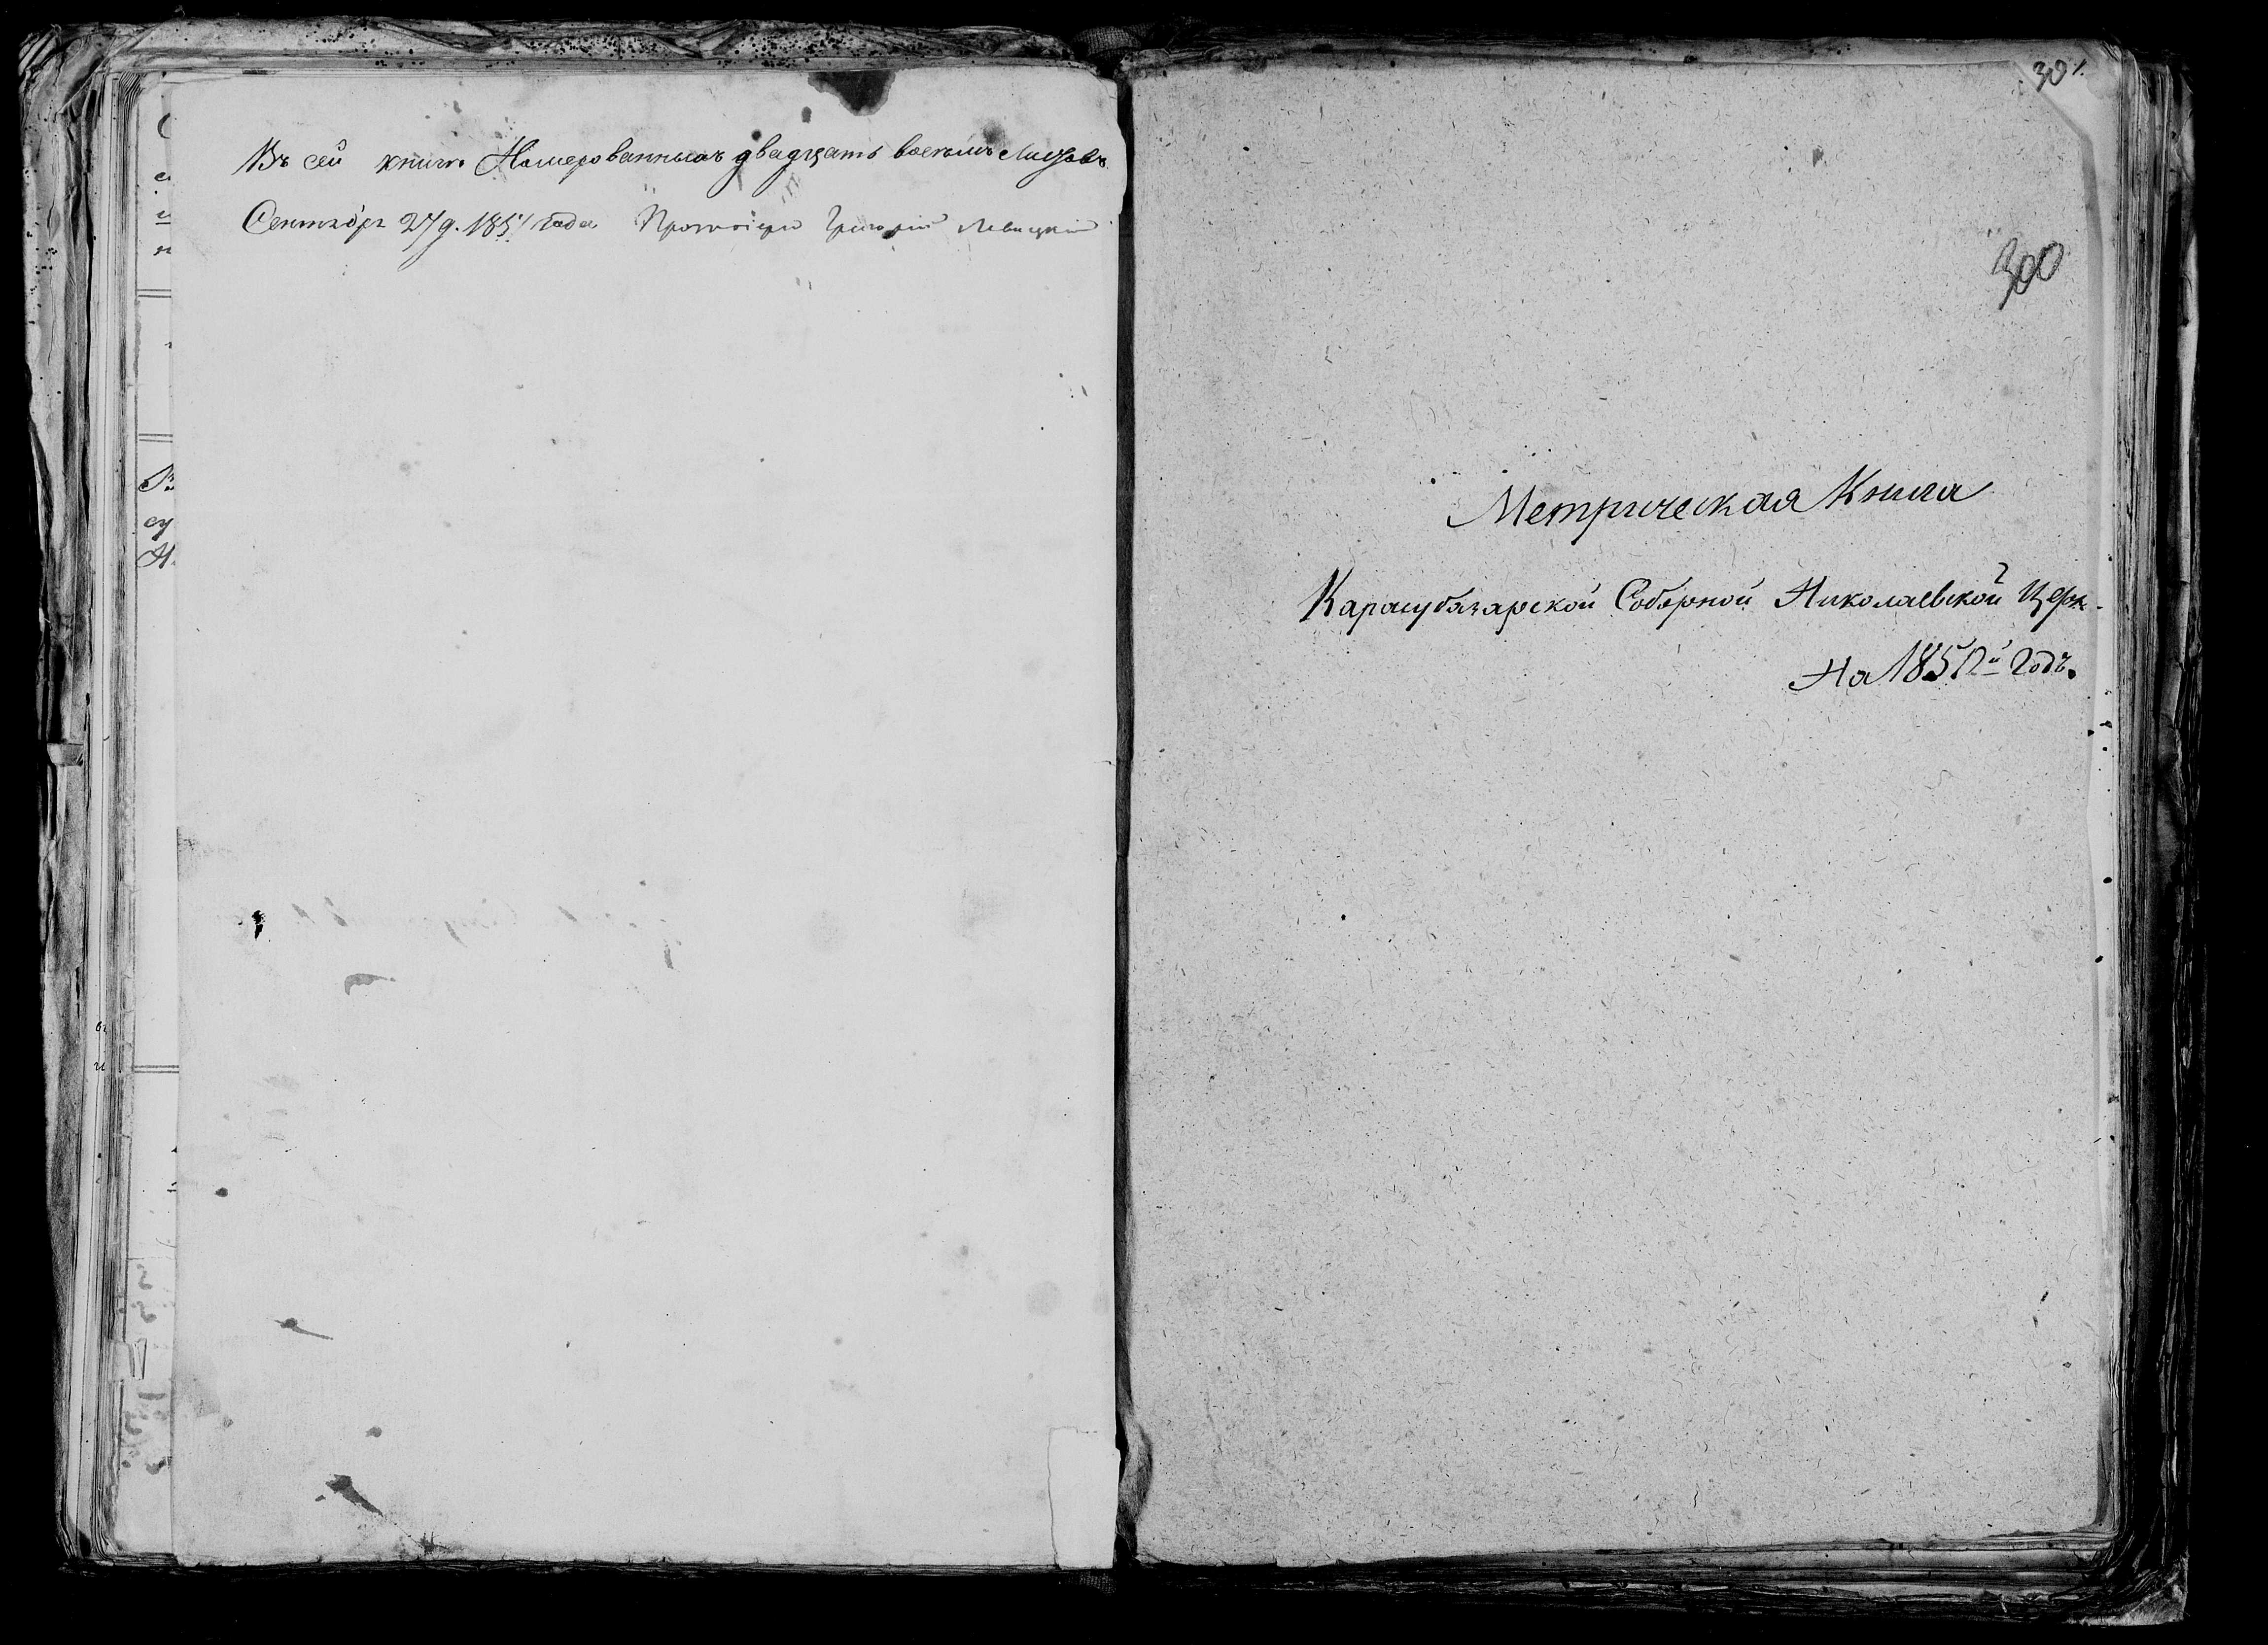 Въ сей книгѣ Номерованныхъ двадцать восемь Листовъ
Сентября 27 д. 1851 года Протоіерей Григорій Левицкій
301.
300
Метрическая Книга
Карасубазарской Соборной Николаевской Церк.
На 1851й Годъ.